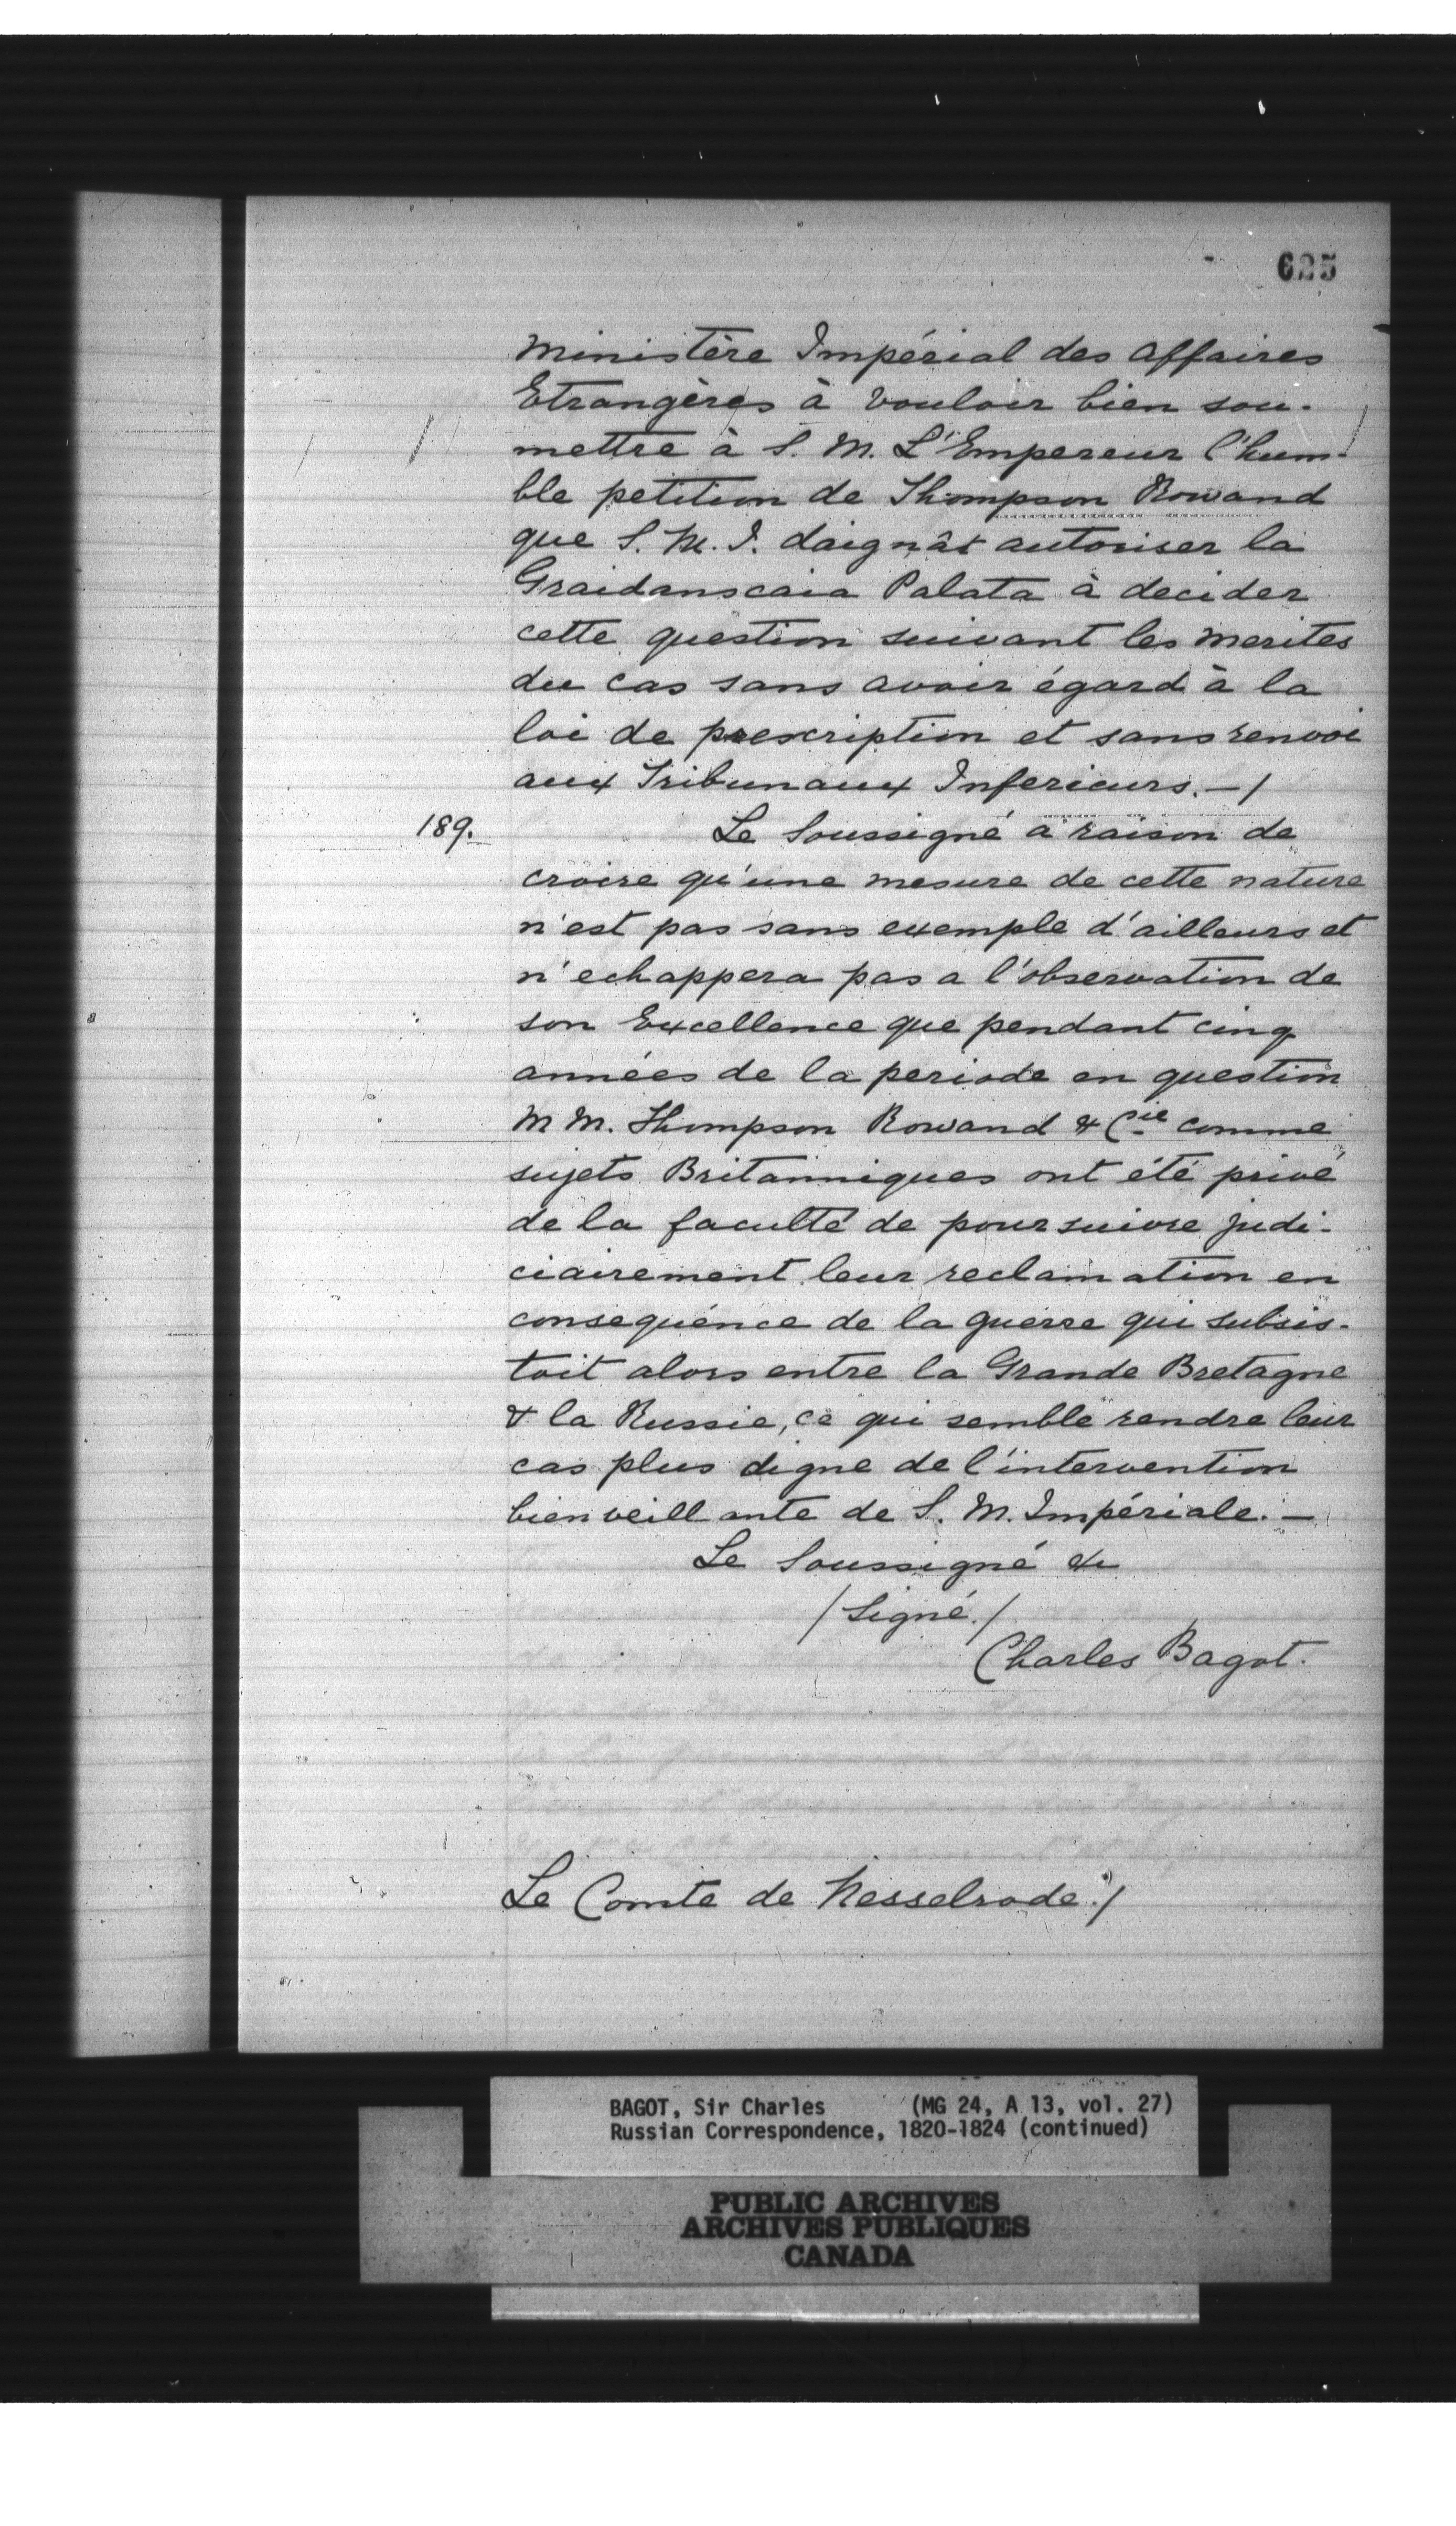 625
Ministère Impérial des Affaires
Etrangères à vouloir bien sou-
mettre à S. M. L'Empereur l'hum-
ble petition de Thompson Rowand
que S. M. I. daignât autoriser la
Graidanscaia Palata à decider
cette question suivant les merites
du cas sans avoir égard à la
loi de prescription et sans renvoi
aux Tribunaux Inferieurs.—/
189.
Le Soussigné a raison de
croire qu'une mesure de cette nature
n'est pas sans exemple d'ailleurs et
n'echappera pas a l'observation de
son Excellence que pendant cinq
années de la periode en question
M M. Thompson Rowand & Cie comme
sujets Britanniques ont été privé
de la faculté de poursuivre judi-
ciairement leur reclamation en
consequénce de la guerre qui subsis-
toit alors entre la Grande Bretagne
& la Russie, ce qui semble rendre leur
cas plus digne de l'intervention
bienveillante de S. M. Impériale.—
Le Soussigné &c
/Signé./
Charles Bagot.
Le Comte de Nesselrode./
BAGOT, Sir Charles (MG 24, A 13, vol. 27)
Russian Correspondence, 1820-1824 (continued)
PUBLIC ARCHIVES
ARCHIVES PUBLIQUES
CANADA